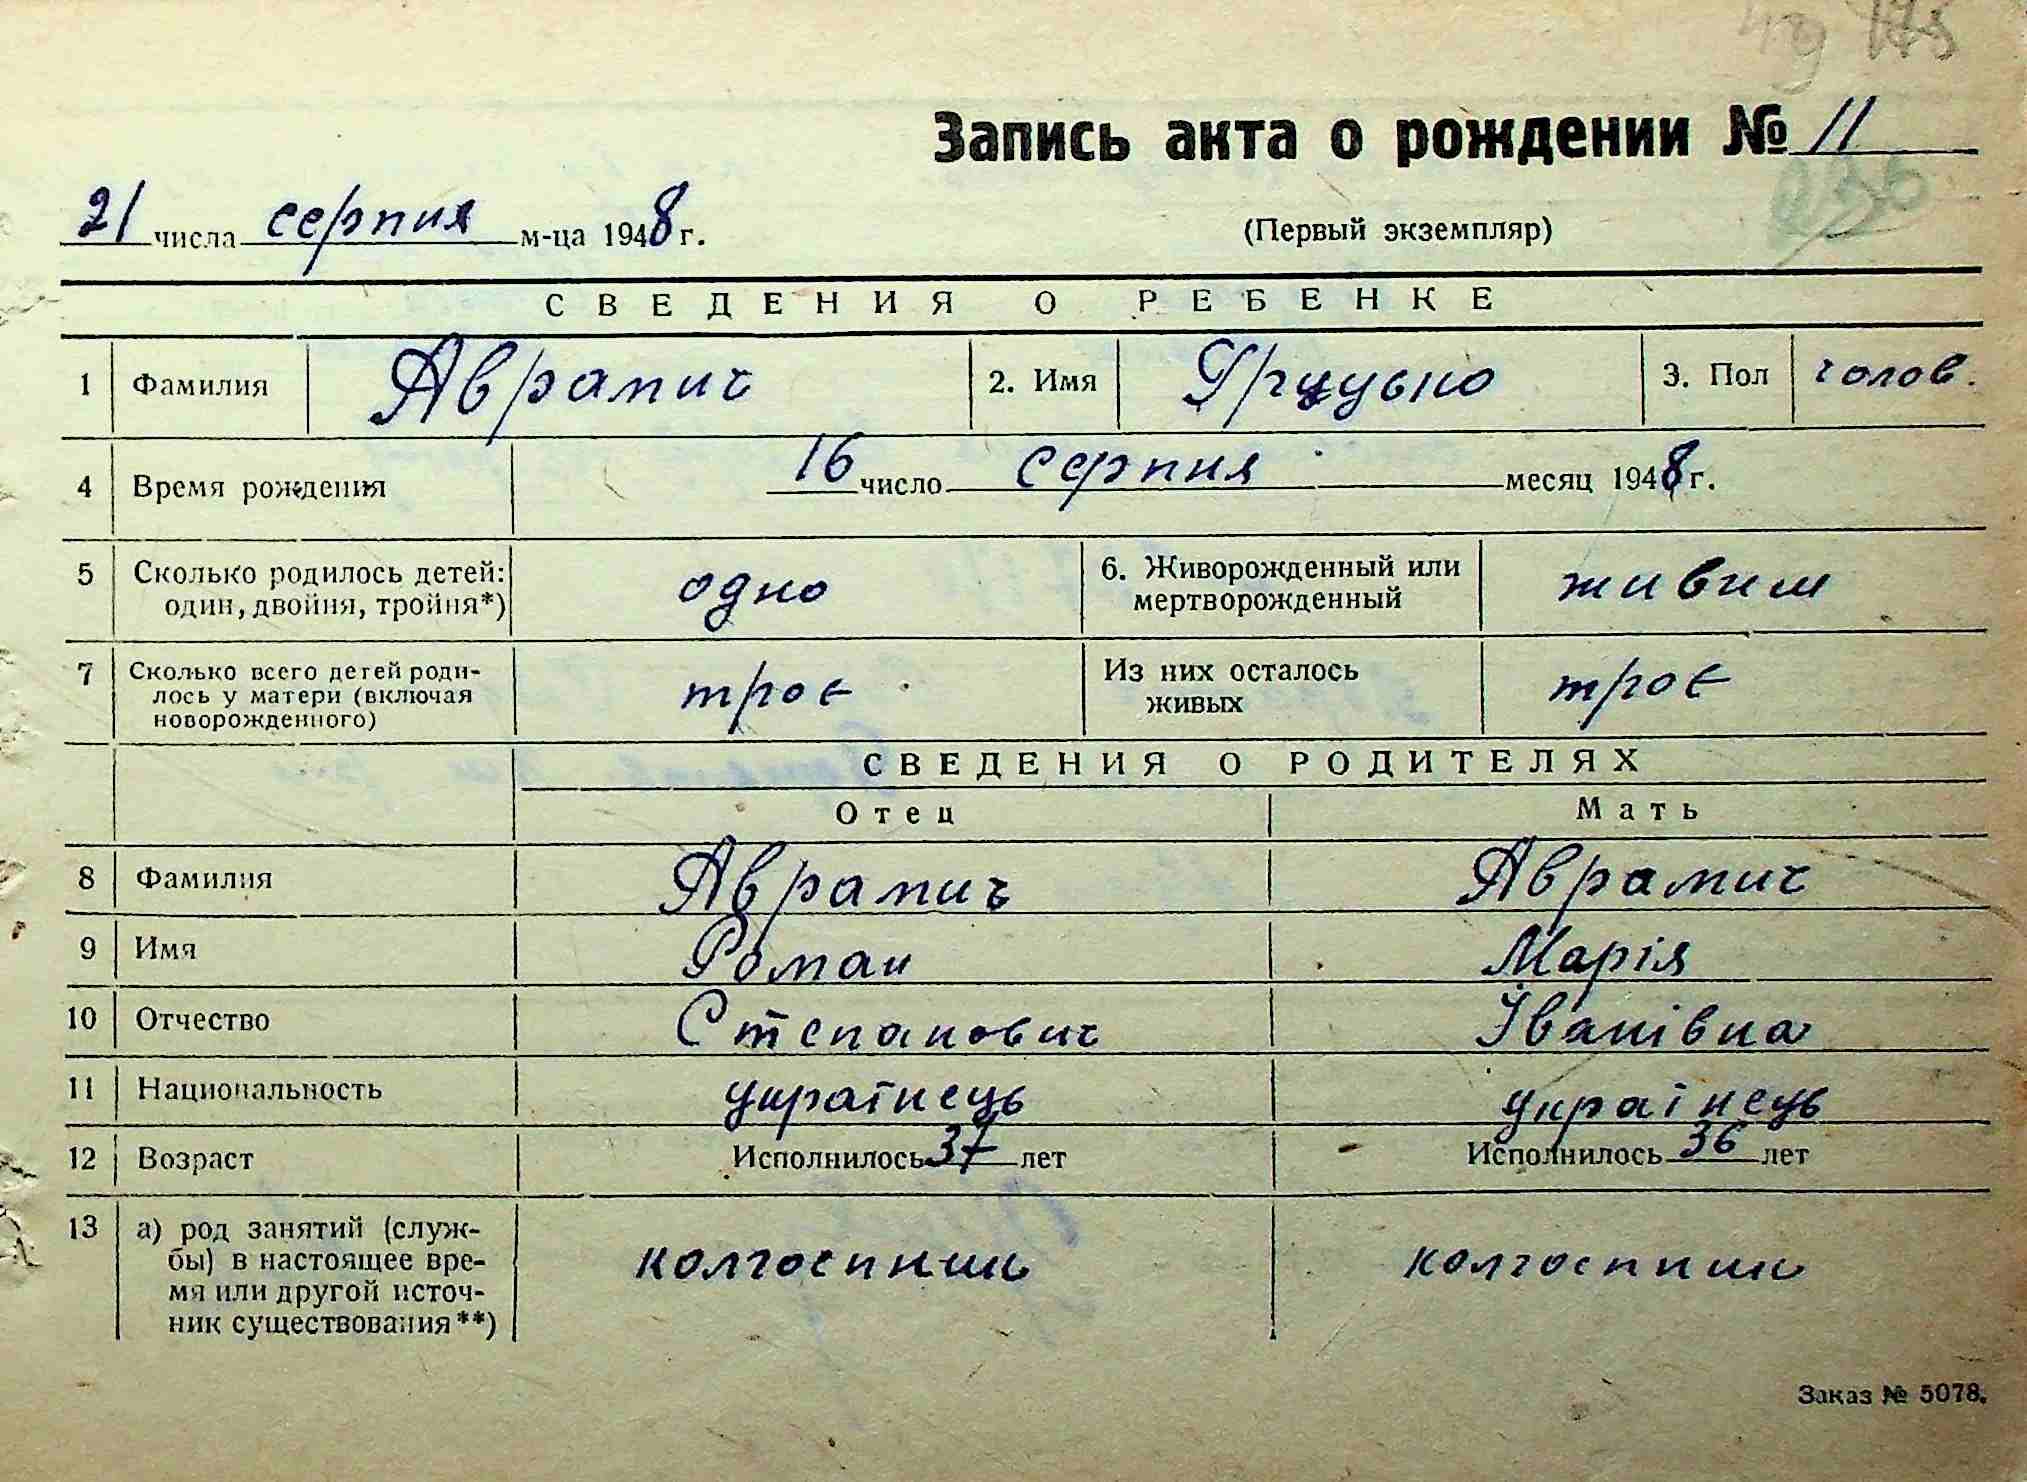 49 175
Запись акта о рождении № 11
21 числа серпня м-ца 1948 г.
(Первый экземпляр)
СВЕДЕНИЯ О РЕБЕНКЕ
1 Фамилия Аврамич 2. Имя Грицунью 3. Пол чолов.
4 Время рождения 16 число серпня месяц 1948 г.
5 Сколько родилось детей: один, двойня, тройня*) одно 6. Живорожденный или мертворожденный живим
7 Сколько всего детей родилось у матери (включая новорожденного) троє Из них осталось живых троє
СВЕДЕНИЯ О РОДИТЕЛЯХ
Отец Мать
8 Фамилия Аврамич Аврамич
9 Имя Роман Марія
10 Отчество Степанович Іванівна
11 Национальность українець українець
12 Возраст Исполнилось 37 лет Исполнилось 36 лет
13 а) род занятий (службы) в настоящее время или другой источник существования**) колгоспник колгоспник
Заказ № 5078.